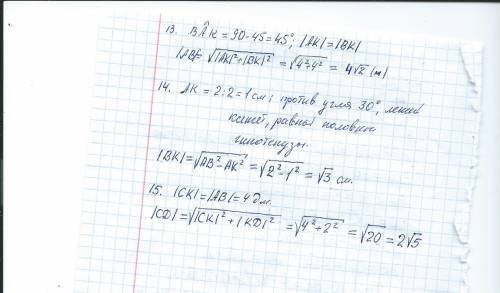 13. BÂK = 90-45=45°; |AK|=|BK|
|AB|= √|AK|²+|BK|² = √4²+4² = 4√2 (м)
14. AK = 2:2=1 см; против угля 30°, лежит
катет, равный половине
гипотенузы.
|BK|=√AB²-AK² = √2²-1² = √3 см.
15. |CK|=|AB|=4 дм.
|CD|=√|CK|²+|KD|² = √4²+2² = √20 = 2√5